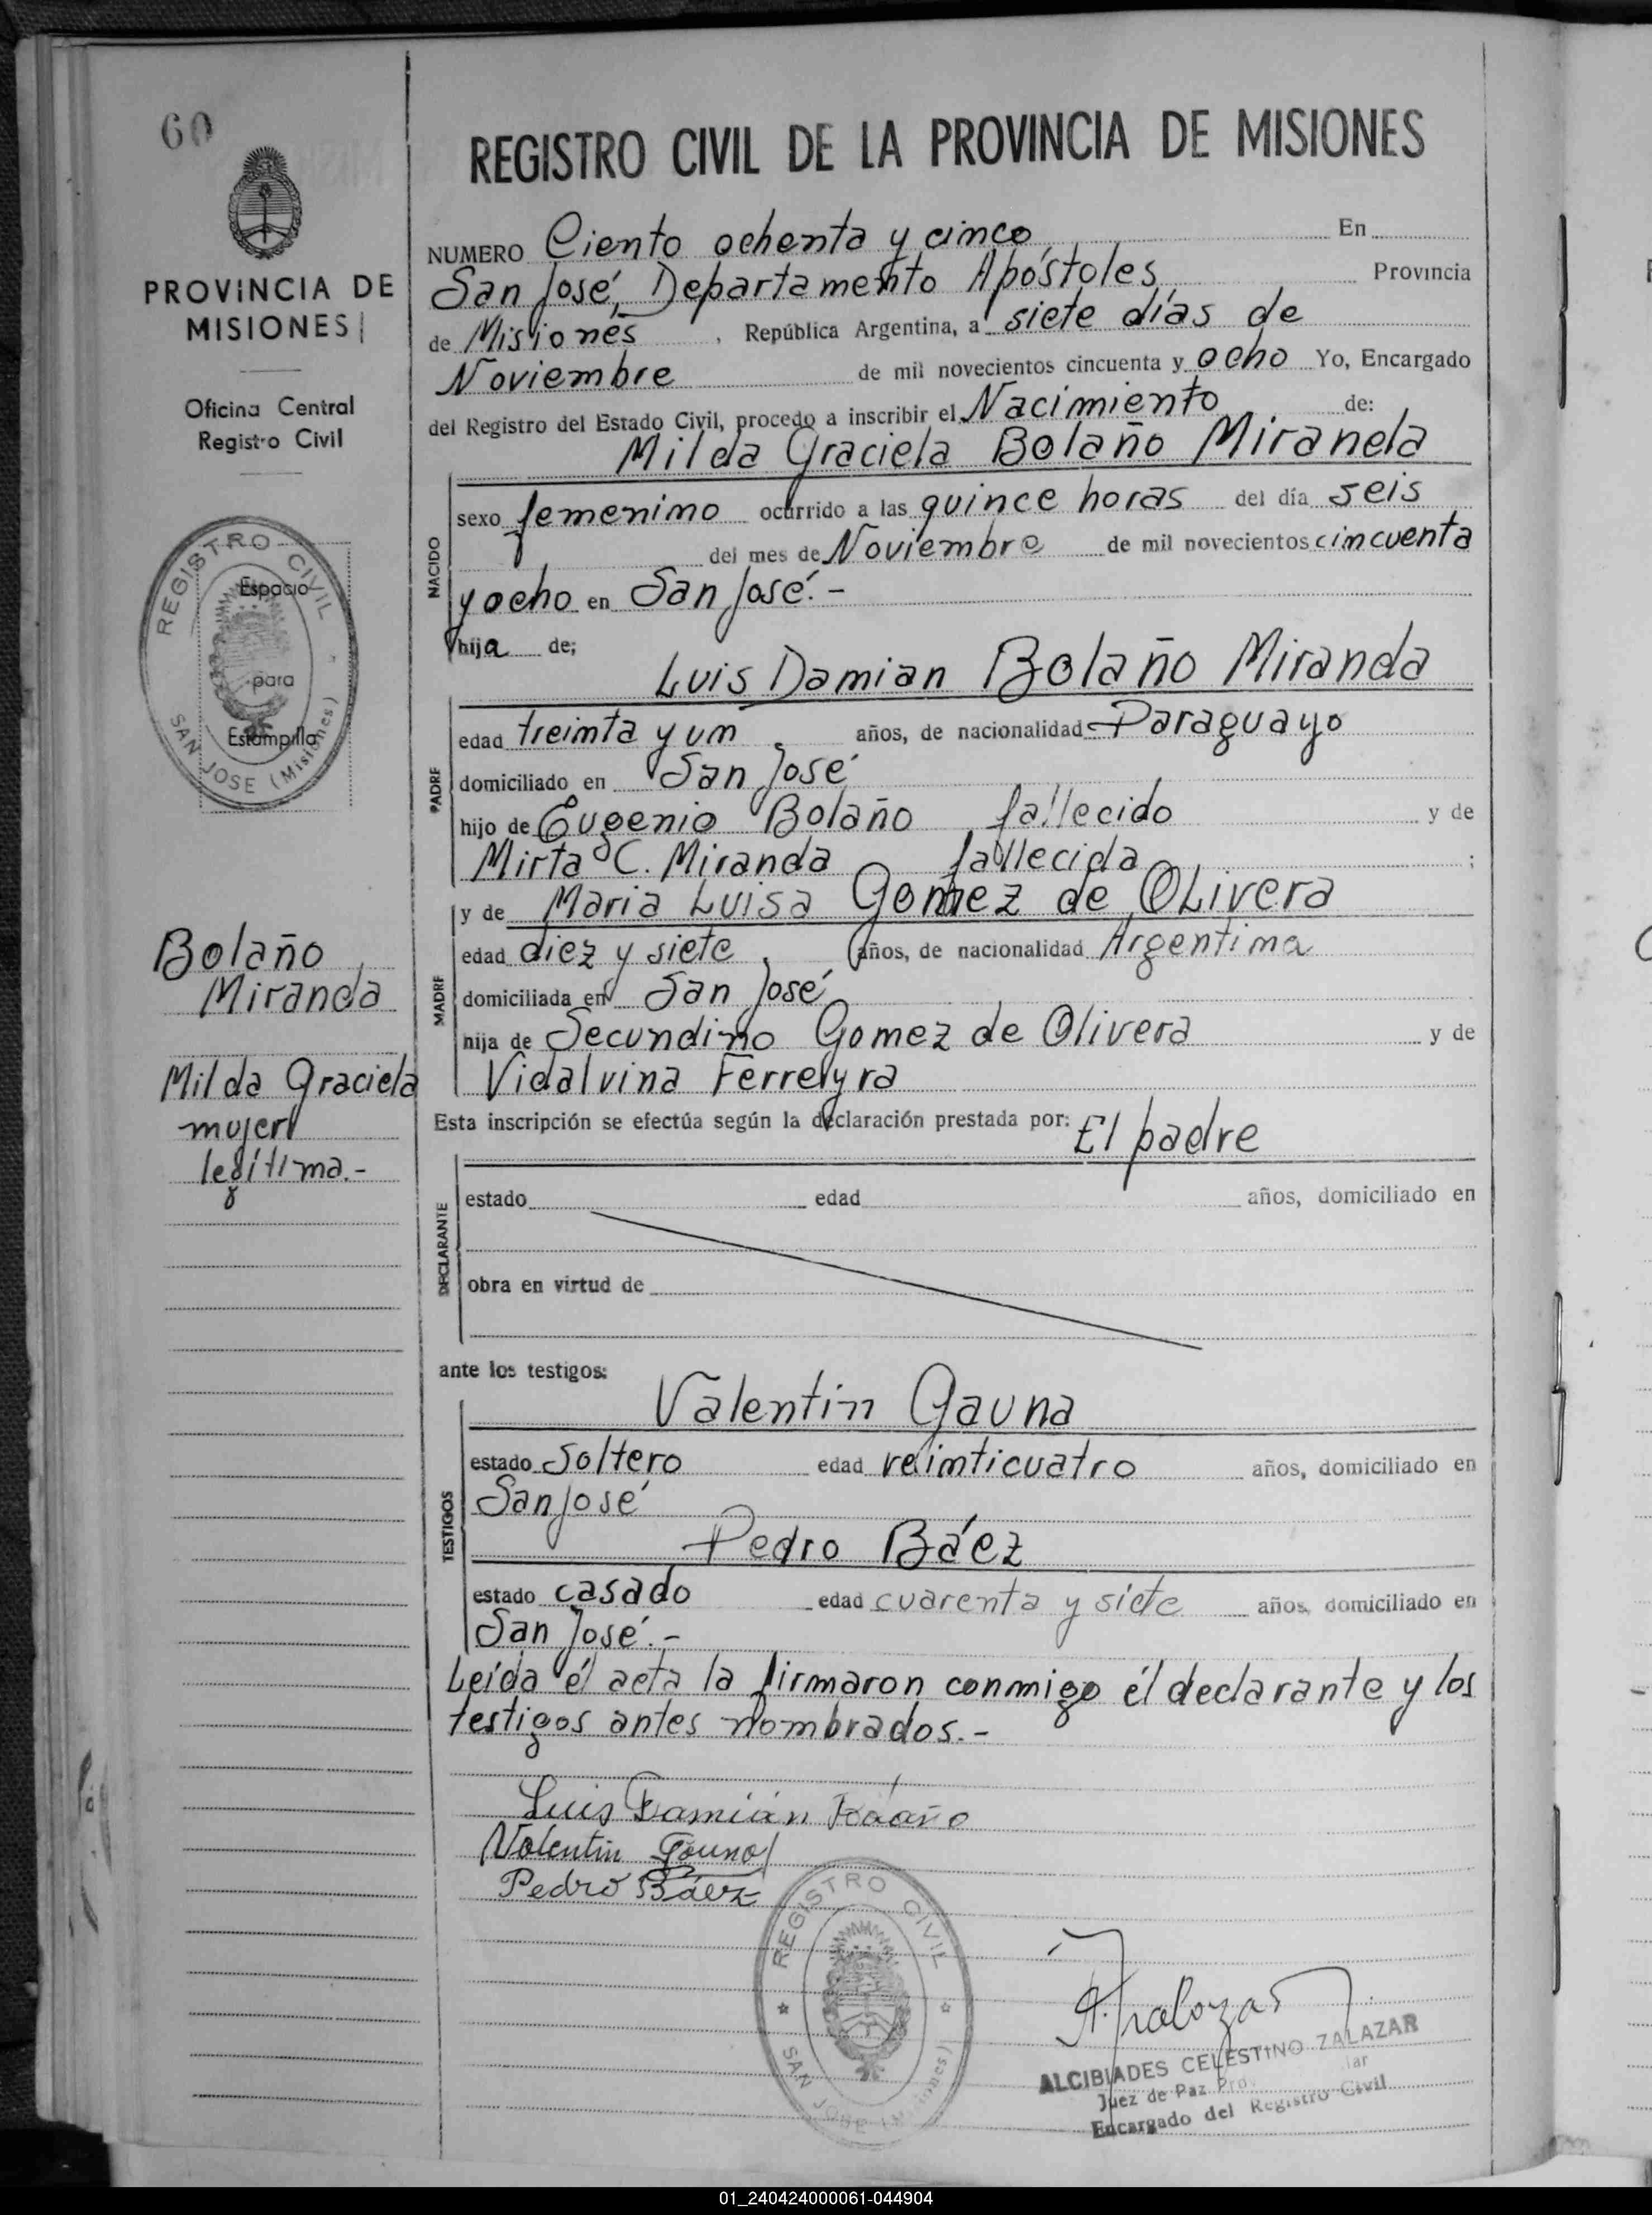 60
REGISTRO CIVIL DE LA PROVINCIA DE MISIONES
PROVINCIA DE
MISIONES
Oficina Central
Registro Civil
REGISTRO CIVIL
SAN JOSE (Misiones)
Espacio
para
Estampilla
Bolaño
Miranda
Milda Graciela
mujer
legítima.-
NUMERO Ciento ochenta y cinco En
San José, Departamento Apóstoles, Provincia
de Misiones, República Argentina, a siete días de
Noviembre de mil novecientos cincuenta y ocho Yo, Encargado
del Registro del Estado Civil, procedo a inscribir el Nacimiento de:
Milda Graciela Bolaño Miranda
NACIDO
sexo femenino ocurrido a las quince horas del día seis
del mes de Noviembre de mil novecientos cincuenta
y ocho en San José.-
hija de;
Luis Damian Bolaño Miranda
PADRE
edad treinta y un, años, de nacionalidad Paraguayo
domiciliado en San José
hijo de Eugenio Bolaño fallecido y de
Mirta C. Miranda fallecida;
y de Maria Luisa Gomez de Olivera
MADRE
edad diez y siete, años, de nacionalidad Argentina
domiciliada en San José
hija de Secundino Gomez de Olivera y de
Vidalvina Ferreyra
Esta inscripción se efectúa según la declaración prestada por: El padre
DECLARANTE
estado edad años, domiciliado en
obra en virtud de
ante los testigos:
Valentin Gauna
TESTIGOS
estado Soltero edad veinticuatro años, domiciliado en
San José
Pedro Báez
estado casado edad cuarenta y siete años, domiciliado en
San José.-
Leída él acta la firmaron conmigo él declarante y los
testigos antes nombrados.-
Luis Damián Bolaño
Valentin Gauna
Pedro Báez
REGISTRO CIVIL
SAN JOSE (Misiones)
A. Zalazar
ALCIBIADES CELESTINO ZALAZAR
Juez de Paz
Encargado del Registro Civil
01_240424000061-044904